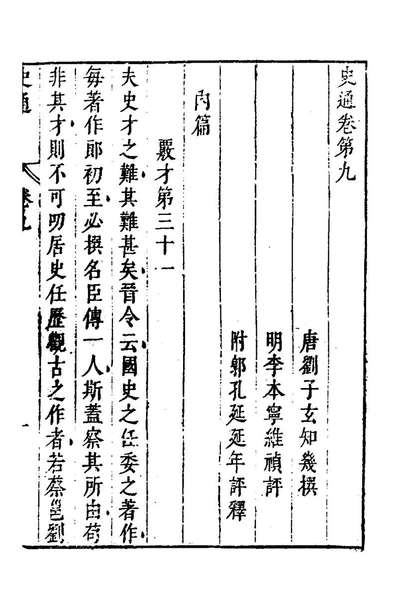 史通卷第九
唐劉子玄知幾撰
明李本寧維禎評
附郭孔延延年評釋
內篇
覈才第三十一
夫史才之難其難甚矣晉令云國史之任委之著作
每著作郎初至必撰名臣傳一人斯蓋察其所由苟
非其才則不可叨居史任歷觀古之作者若蔡邕劉
史通 卷九 一